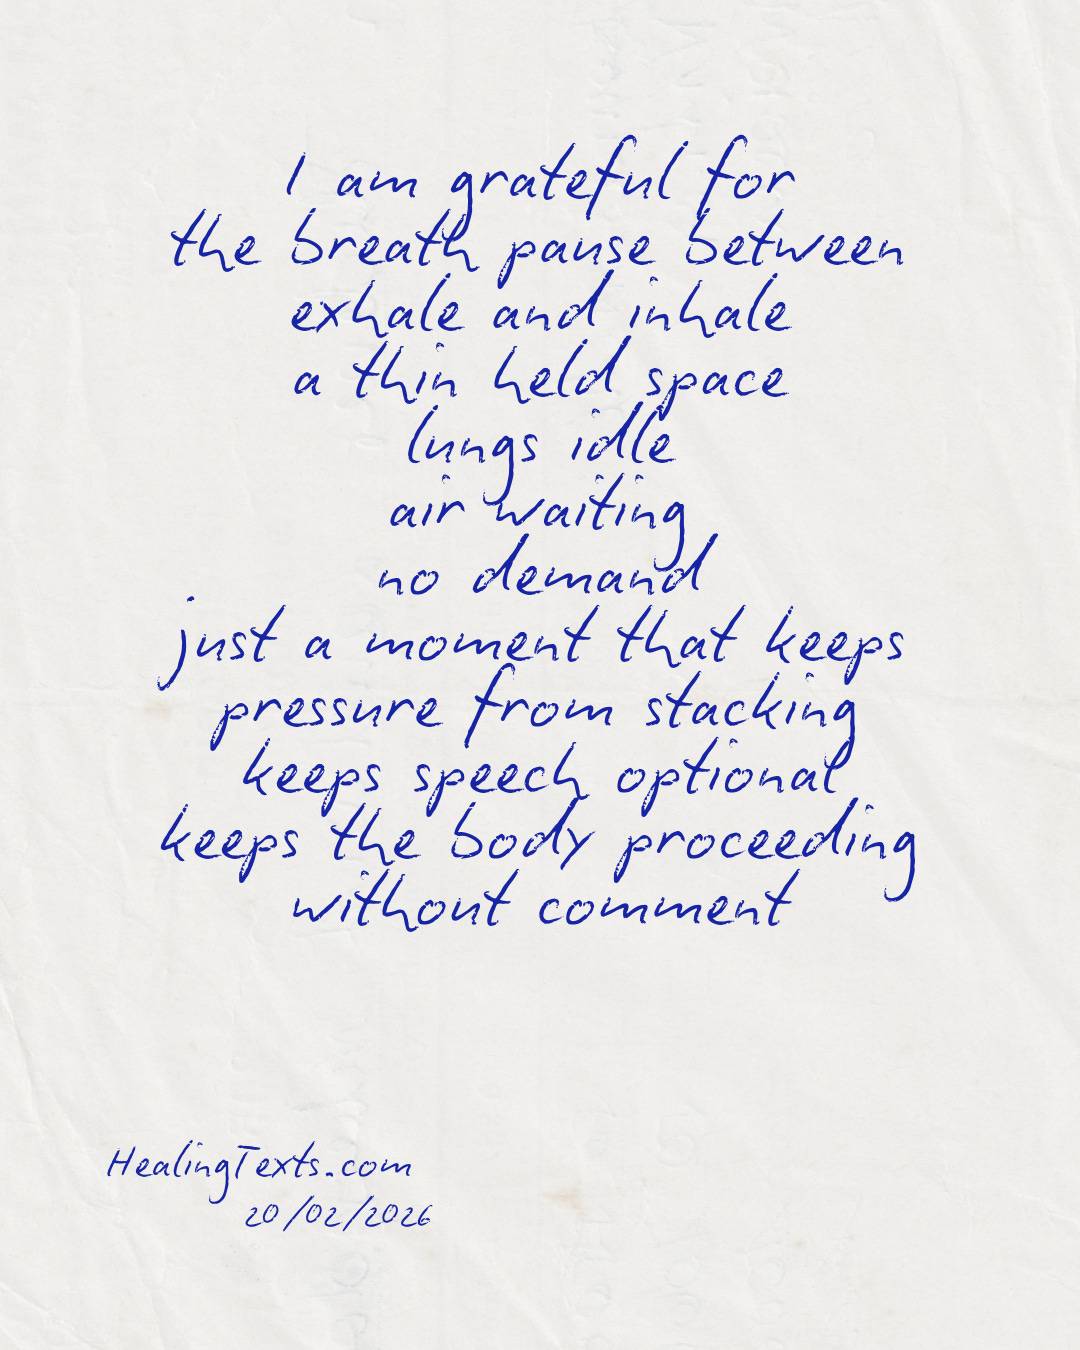 I am grateful for
the breath pause between
exhale and inhale
a thin held space
lungs idle
air waiting
no demand
just a moment that keeps
pressure from stacking
keeps speech optional
keeps the body proceeding
without comment
HealingTexts.com
20/02/2026